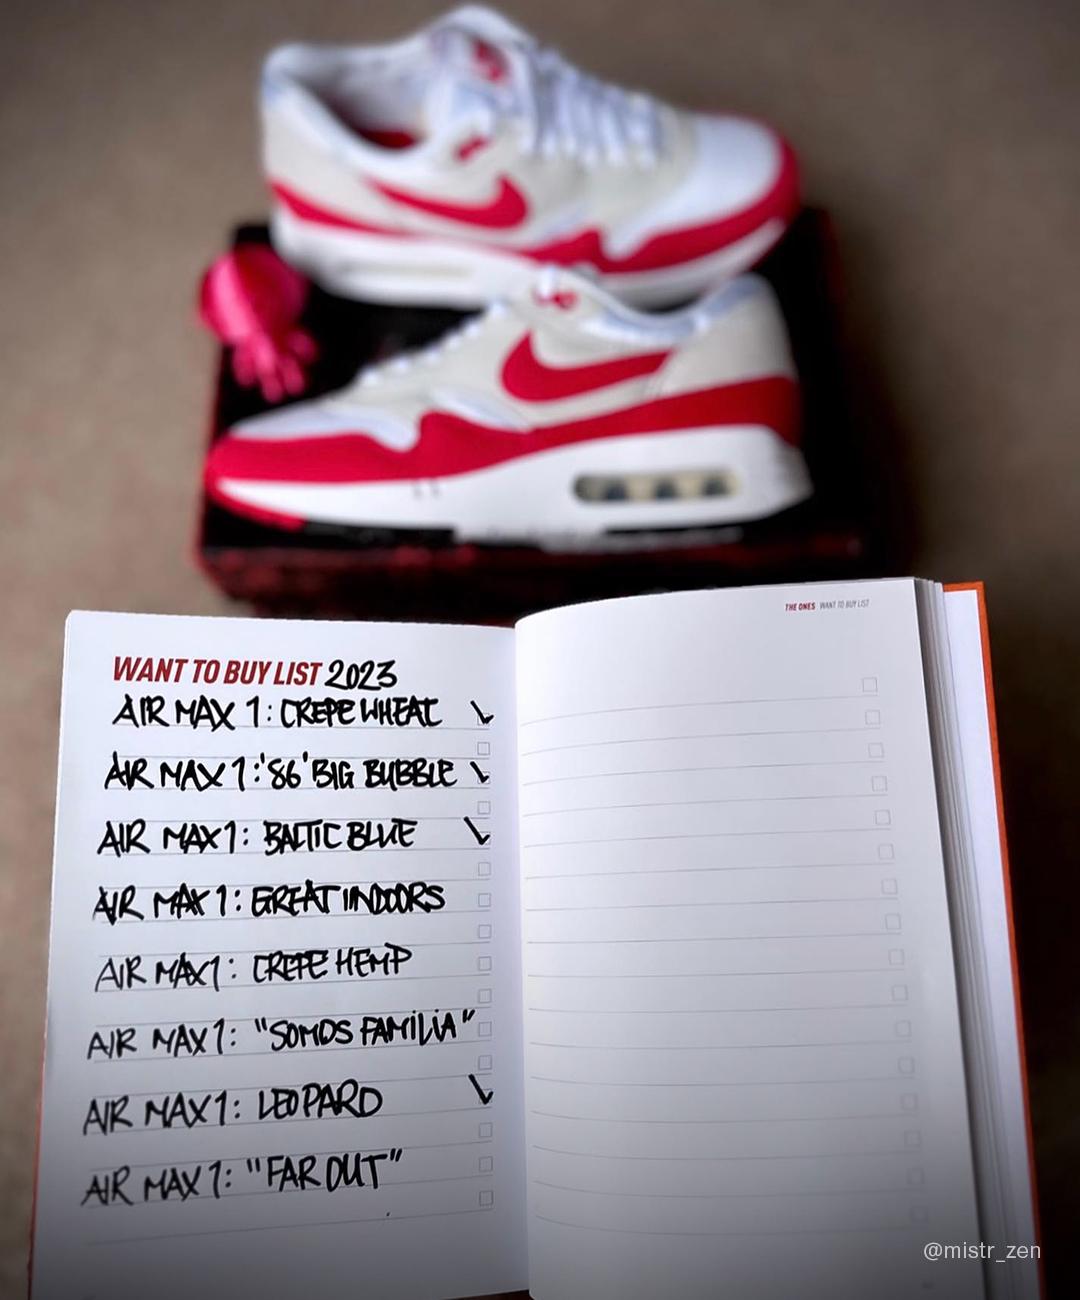 THE ONES WANT TO BUY LIST
WANT TO BUY LIST 2023
AIR MAX 1: CREPE WHEAT
AIR MAX 1: '86' BIG BUBBLE
AIR MAX 1: BALTIC BLUE
AIR MAX 1: GREAT INDOORS
AIR MAX 1: CREPE HEMP
AIR MAX 1: "SOMOS FAMiLiA"
AIR MAX 1: LEOPARD
AIR MAX 1: "FAR OUT"
@mistr_zen